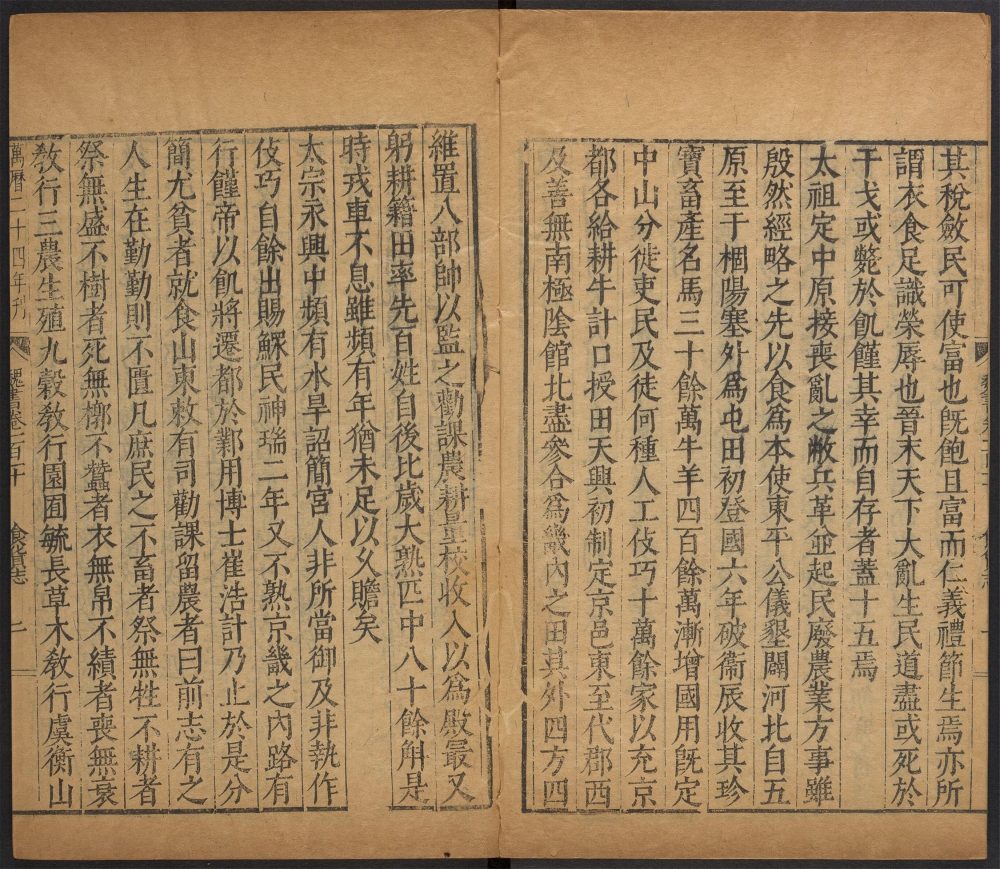 其稅斂民可使富也既飽且富而仁義禮節生焉亦所
謂衣食足識榮辱也晉末天下大亂生民道盡或死於
干戈或斃於飢饉其幸而自存者蓋十五焉
太祖定中原接喪亂之敝兵革並起民廢農業方事雖
殷然經略之先以食爲本使東平公儀墾闢河北自五
原至于棝陽塞外爲屯田初登國六年破衞辰收其珍
寶畜產名馬三十餘萬牛羊四百餘萬漸增國用既定
中山分徙吏民及徒何種人工伎巧十萬餘家以充京
都各給耕牛計口授田天興初制定京邑東至代郡西
及善無南極陰館北盡參合爲畿內之田其外四方四
維置八部帥以監之勸課農耕量校收入以爲殿最又
躬耕籍田率先百姓自後比歲大熟匹中八十餘斛是
時戎車不息雖頻有年猶未足以久贍矣
太宗永興中頻有水旱詔簡宮人非所當御及非執作
伎巧自餘出賜鰥民神瑞二年又不熟京畿之內路有
行饉帝以飢將遷都於鄴用博士崔浩計乃止於是分
簡尤貧者就食山東敕有司勸課留農者曰前志有之
人生在勤勤則不匱凡庶民之不畜者祭無牲不耕者
祭無盛不樹者死無槨不蠶者衣無帛不績者喪無衰
敎行三農生殖九穀敎行園囿毓長草木敎行虞衡山
萬曆二十四年刊 魏書卷一百十 食貨志 二